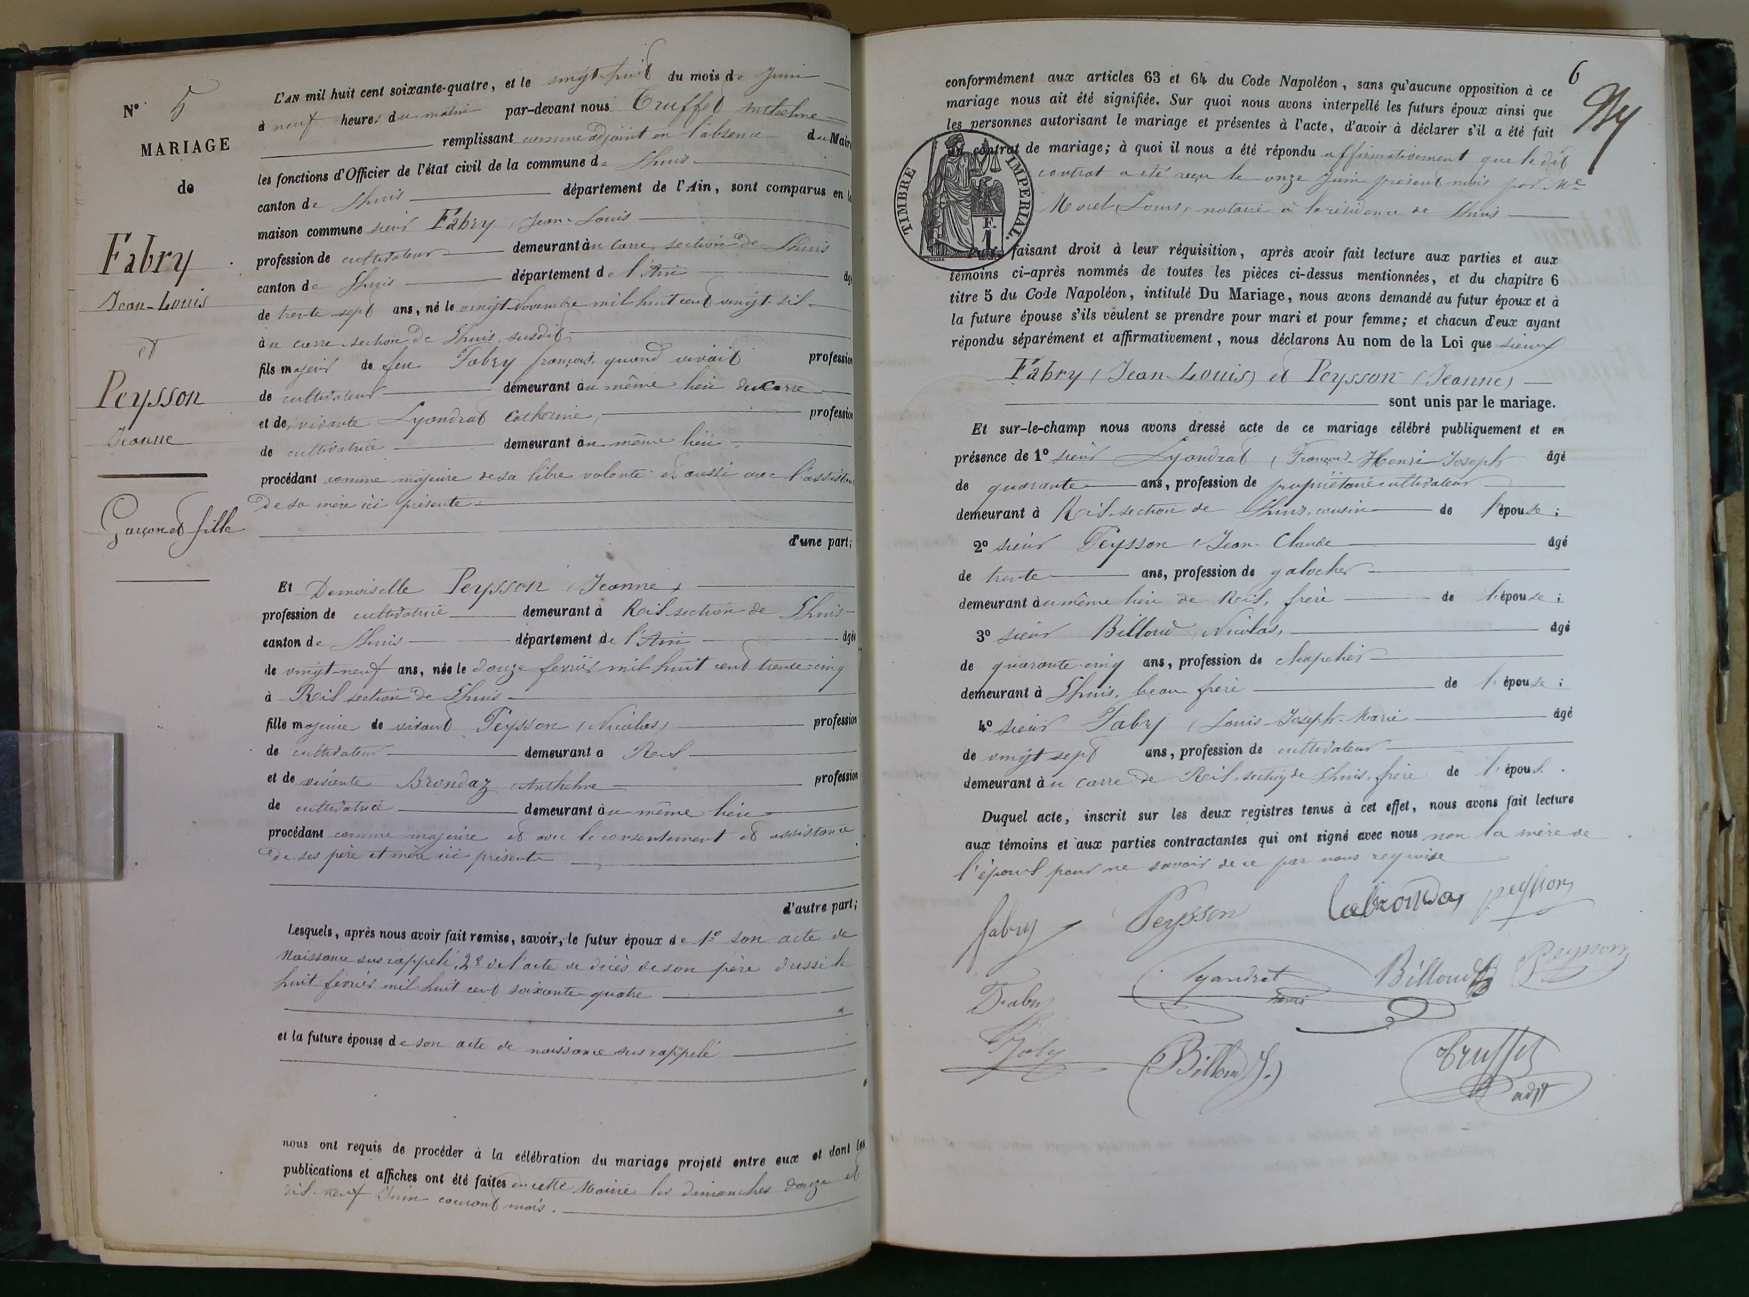 N° 5
MARIAGE
de
Fabry
Jean-Louis
et
Peysson
Jeanne
Garçon et fille
L'AN mil huit cent soixante-quatre, et le vingt-huit du mois de Juin
à neuf heures du matin par-devant nous Truffet
remplissant comme adjoint en l'absence du Maire
les fonctions d'Officier de l'état civil de la commune de Lhuis
canton de Lhuis département de l'Ain, sont comparus en la
maison commune sieur Fabry (Jean-Louis
profession de cultivateur demeurant au carre, section de Lhuis
canton de Lhuis département de l'Ain âgé
de trente sept ans, né le mil huit cent vingt six
au carre section de Lhuis susdit
fils majeur de feu Fabry françois, quand vivait profession
de cultivateur demeurant au même lieu du Carre
et de vivante Lyandrat Catherine, profession
de cultivatrice demeurant au même lieu
procédant comme majeure de sa libre volonté et aussi avec l'assistance
de sa mère ici présente
d'une part;
Et Demoiselle Peysson (Jeanne)
profession de cultivatrice demeurant à Rix section de Lhuis
canton de Lhuis département de l'Ain âgée
de vingt-neuf ans, née le douze fevrier mil huit cent trente-cinq
à Rix section de Lhuis
fille majeure de vivant Peysson (Nicolas) profession
de cultivateur demeurant à Rix
et de vivante Brondaz Anthelme profession
de cultivatrice demeurant au même lieu
procédant comme majeure et avec le consentement et assistance
de ses père et mère ici présents
d'autre part;
Lesquels, après nous avoir fait remise, savoir, le futur époux de 1° son acte de
naissance sus rappelé, 2° de l'acte de décès de son père dressé le
huit fevrier mil huit cent soixante quatre
et la future épouse de son acte de naissance sus rappelé
nous ont requis de procéder à la célébration du mariage projeté entre eux et dont les
publications et affiches ont été faites en cette Mairie les dimanches douze et
dix-neuf Juin courant mois.
6
conformément aux articles 63 et 64 du Code Napoléon, sans qu'aucune opposition à ce
mariage nous ait été signifiée. Sur quoi nous avons interpellé les futurs époux ainsi que
les personnes autorisant le mariage et présentes à l'acte, d'avoir à déclarer s'il a été fait
un contrat de mariage; à quoi il nous a été répondu affirmativement que le dit
contrat a été reçu le onze Juin présent mois par Me
Morel Louis, notaire à la résidence de Lhuis
TIMBRE IMPERIAL
F.
1
Puis faisant droit à leur réquisition, après avoir fait lecture aux parties et aux
témoins ci-après nommés de toutes les pièces ci-dessus mentionnées, et du chapitre 6
titre 5 du Code Napoléon, intitulé Du Mariage, nous avons demandé au futur époux et à
la future épouse s'ils veulent se prendre pour mari et pour femme; et chacun d'eux ayant
répondu séparément et affirmativement, nous déclarons Au nom de la Loi que sieur
Fabry (Jean-Louis) et Peysson (Jeanne)
sont unis par le mariage.
Et sur-le-champ nous avons dressé acte de ce mariage célébré publiquement et en
présence de 1° sieur Lyandrat (François-Henri Joseph âgé
de quarante ans, profession de propriétaire cultivateur
demeurant à Rix section de Lhuis, cousin de l'épouse;
2° sieur Peysson (Jean-Claude âgé
de trente ans, profession de galocher
demeurant au même lieu de Rix, frère de l'épouse;
3° sieur Billoud Nicolas, âgé
de quarante-cinq ans, profession de chapelier
demeurant à Lhuis, beau frère de l'épouse;
4° sieur Fabry (Louis-Joseph-Marie âgé
de vingt sept ans, profession de cultivateur
demeurant au carre de Rix, section de Lhuis, frère de l'époux.
Duquel acte, inscrit sur les deux registres tenus à cet effet, nous avons fait lecture
aux témoins et aux parties contractantes qui ont signé avec nous non la mère de
l'époux pour ne savoir de ce par nous requise
fabry Peysson labrondaz peysson
Lyandrat Billoud Peysson
Fabry
Joly Billoud J.) Truffet
adjt